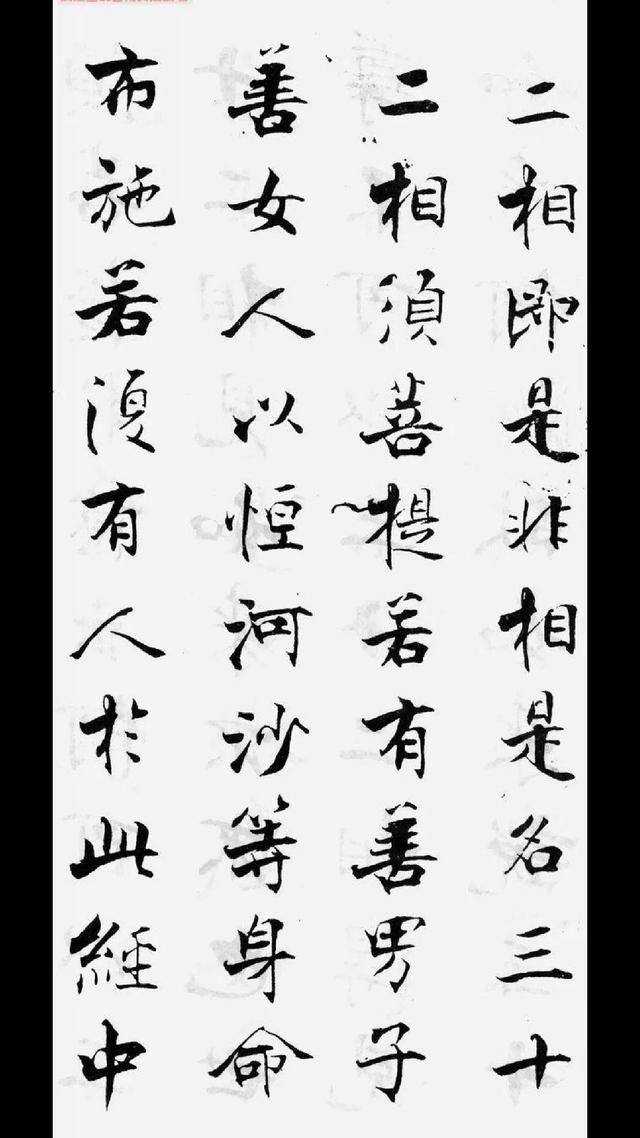 二相即是非相是名三十
二相須菩提若有善男子
善女人以恒河沙等身命
布施若復有人於此經中